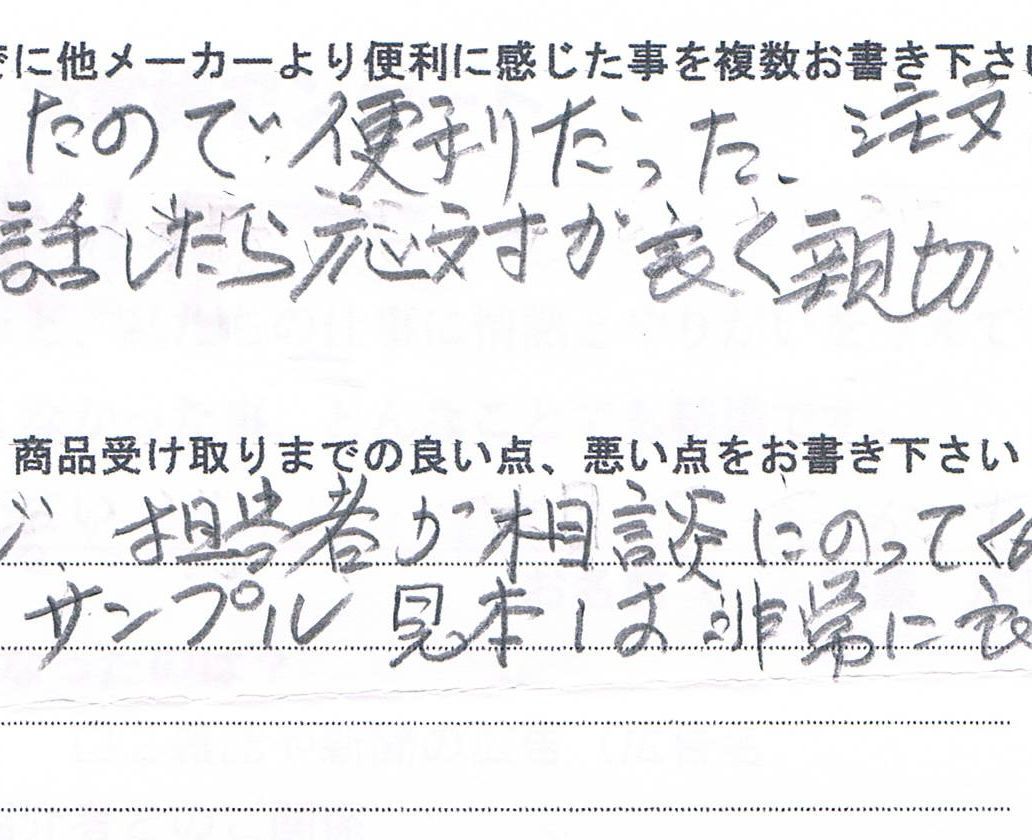 でに他メーカーより便利に感じた事を複数お書き下さい
たので便利だった、注文
話したら応対が良く親切
商品受け取りまでの良い点、悪い点をお書き下さい
担当者が相談にのってく
サンプル見本は非常に良